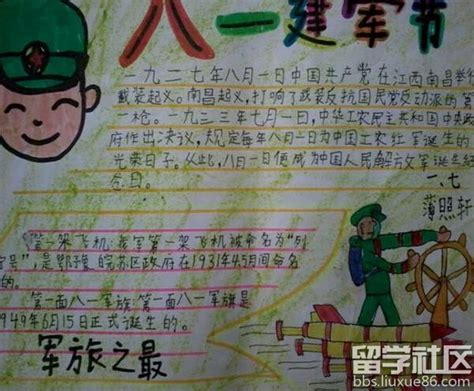 八一建军节
一九二七年八月一日中国共产党在江西南昌举行
武装起义。南昌起义,打响了武装反抗国民党反动派的第
一枪。一九三三年七月一日,中华工农民主共和国中央政
府作出决议,规定每年八月一日为中国工农红军诞生的
光荣日子。从此,八月一日便成为中国人民解放军诞生纪
念日。
一、七
薄照轩
第一架飞机:我军第一架飞机被命名为“列
宁号”,是鄂豫皖苏区政府在1931年4、5月间命名
的。
第一面八一军旗:第一面八一军旗是
1949年6月15日正式诞生的。
军旅之最
留学社区
bbs.liuxue86.com